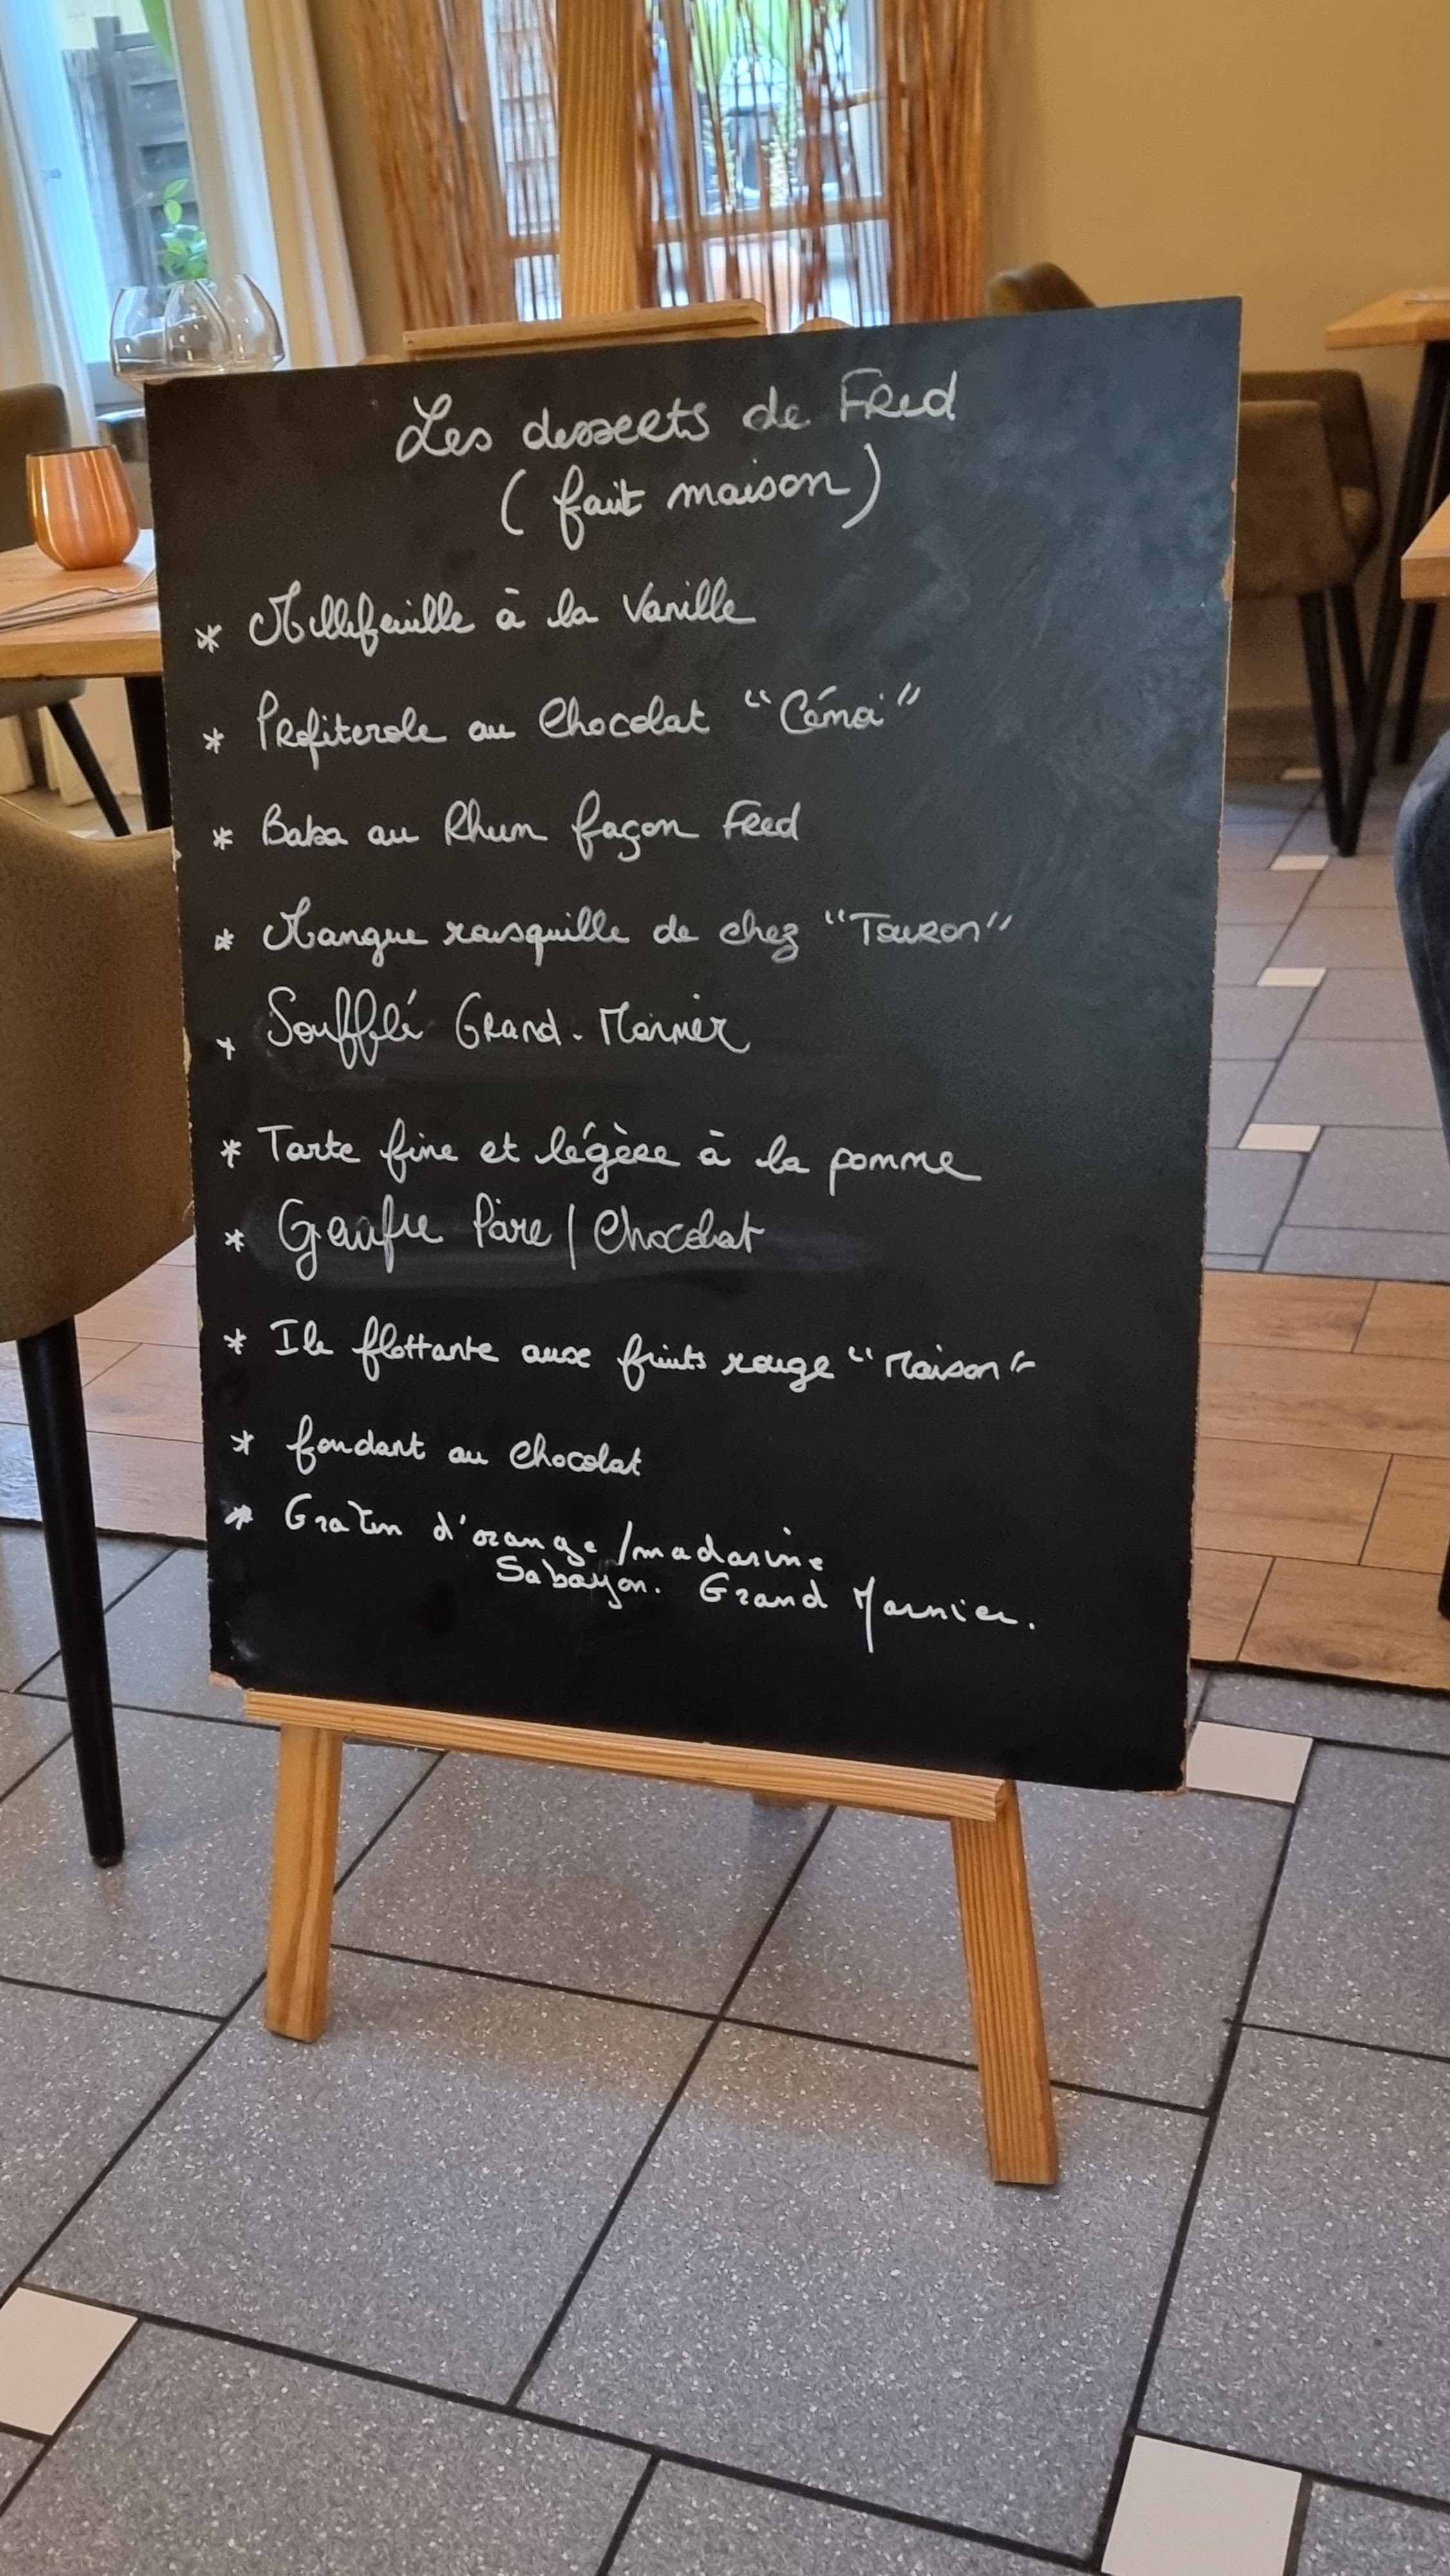 Les desserts de Fred
(fait maison)
* Millefeuille à la Vanille
* Profiterole au Chocolat "Cémoi"
* Baba au Rhum façon Fred
* Mangue rousquille de chez "Touron"
* Soufflé Grand-Marnier
* Tarte fine et légère à la pomme
* Gaufre Poire / Chocolat
* Ile flottante aux fruits rouge "Maison"
* fondant au Chocolat
* Gratin d'orange /madarine
Sabayon. Grand Marnier.